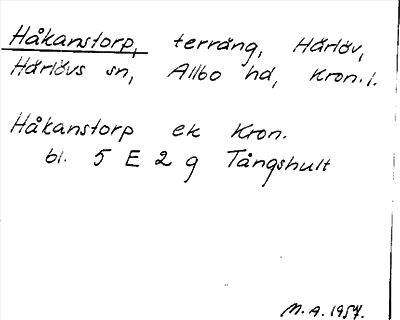 Håkanstorp, terräng, Härlöv,
Härlövs sn, Allbo hd, Kron.l.
Håkanstorp ek Kron.
bl. 5 E 2 g Tångshult
M.A. 1957.